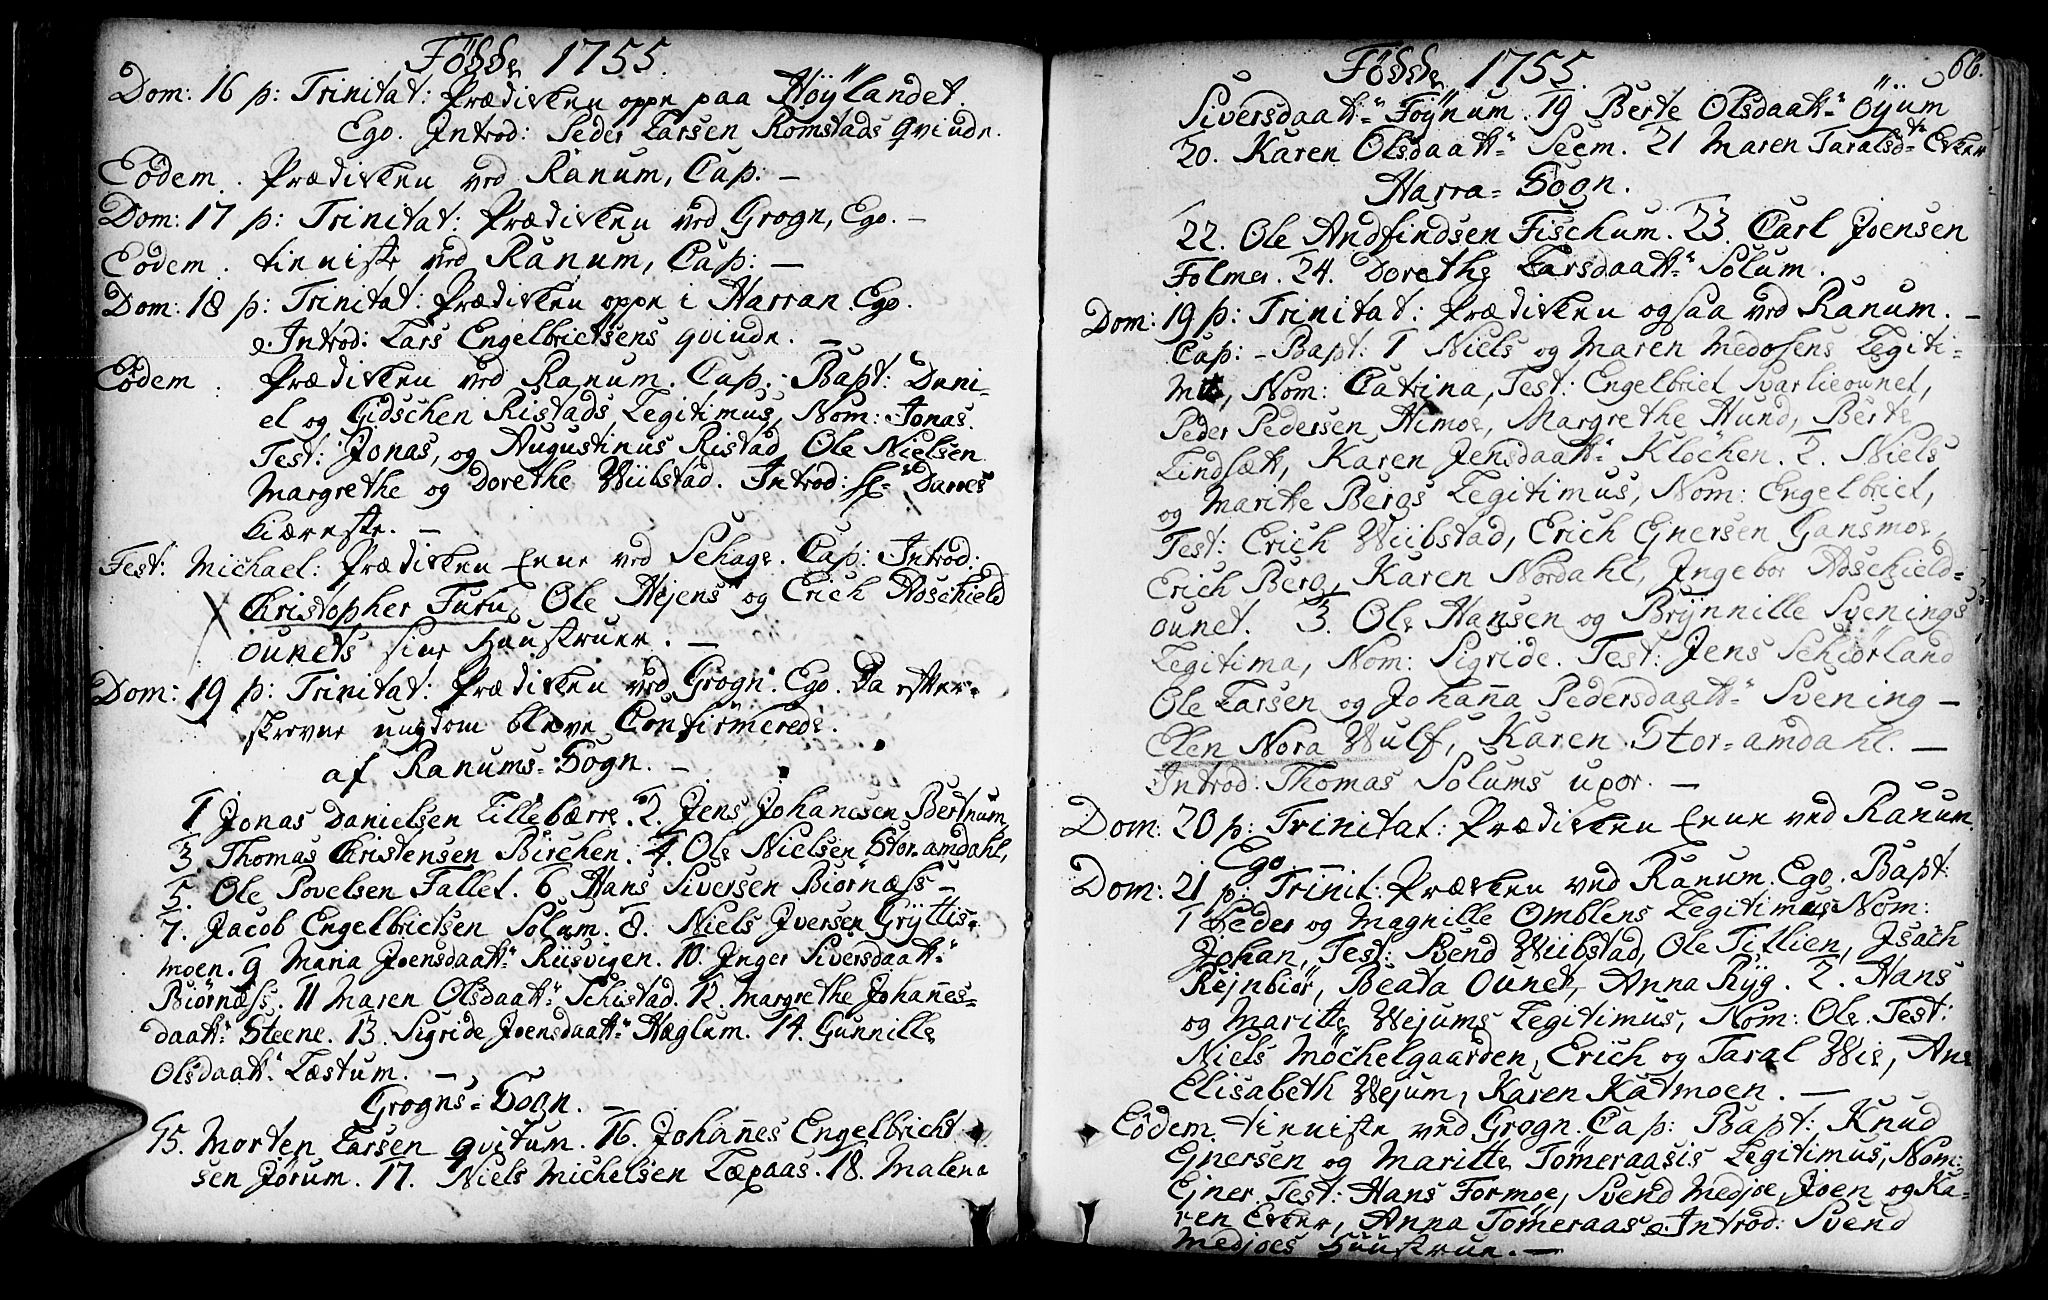 Födde 1755.
Dom: 16 p: Trinitat: Prædicken oppe paa Höÿlandet.
Ego. Introd: Peder Larsen Romstads qvinde.
Eodem. Prædicken ved Ranum, Cap: —
Dom: 17 p: Trinitat: Prædicken ved Grogn, Ego. —
Eodem. tienniste ved Ranum, Cap: —
Dom: 18 p: Trinitat: Prædicken oppe i Harran. Ego.
Introd: Lars Engelbrictsens qvinde. —
Eodem. Prædicken ved Ranum. Cap. Bapt: Dani-
el og Gidschen Ristads Legitimus, Nom: Jonas.
Test: Jonas, og Augustinus Ristad, Ole Nielsen
Margrethe og Dorethe Wiibstad. Introd:
kiæreste. —
Fest: Michael: Prædicken Enne ved Sehage. Cap: Introd:
Christopher Furu, Ole Hejens og Erich Adschield
ounets sine Huustruer. —
Dom: 19 p: Trinitat: Prædicken ved Grogn. Ego. Da efter-
skrevne ungdom bleve Confirmerede.
af Ranums-Sogn. —
1 Jonas Danielsen Lillebærre. 2. Jens Johannesen Bertnum
3. Thomas Christensen Birchen. 4. Ole Nielsen Stor-amdahl,
5. Ole Povelsen Fallet. 6 Hans Siversen Biörnæss —
7. Jacob Engelbrictsen Solum. 8. Niels Jversen Grÿttis-
moen. 9 Maria Joensdaatt: Rusvigen. 10. Jnger Siversdaatt:
Biörnæss. 11 Maren Olsdaatt: Schistad. 12. Margrethe Johañes-
daatt: Steene. 13. Sigride Joensdaatt: Haglum. 14. Gunnille
Olsdaatt: Læstum. —
Grogns-Sogn. —
15. Morten Larsen qvitum. 16. Johañes Engelbricht
sen Jörum. 17. Niels Michelsen Læxaas. 18. Malena
Födde 1755. 66.
Siversdaatt: Föÿnum. 19 Berte Olsdaatt: Öÿum
20. Karen Olsdaatt: Seem. 21 Maren Taralsd: Ekker
Harra-Sogn.
22. Ole Andfindsen Fischum. 23. Carl Joensen
Folmer. 24. Dorethe Larsdaatt: Solum.
Dom: 19 p: Trinitat: Prædicken ogsaa ved Ranum. —
Cap: — Bapt: 1 Niels og Maren Medosens Legiti-
Nom: Catrina, Test: Engelbrict Svarlieounet,
Peder Pedersen Himoe, Margrethe Hund, Berte
Lindsæt, Karen Jensdaatt: Klöchen. 2. Niels
og Marite Bergs Legitimus, Nom: Engelbrict,
Test: Erich Wiibstad, Erich Gnersen Gansmoe,
Erich Berg, Karen Nordahl, Jngebor Adschield-
ounet. 3. Ole Hansen og Brÿnnille Svenings
Legitima, Nom: Sigride. Test: Jens Schiörland
Ole Larsen og Johaña Pedersdaatt: Svening —
Elen Nora Wulf, Karen Stor-amdahl. —
Introd: Thomas Solums uxor. —
Dom: 20 p: Trinitat: Prædicken Enne ved Ranum.
Ego
Dom: 21 p: Trinit: Prædicken ved Ranum. Ego. Bapt:
1 Peder og Magnille Omblens Legitimus, Nom:
Johan, Test: Svend Wiibstad, Ole Titlien, Jsach
Rejnbiör, Beata Ounet, Anna Rÿg. 2. Hans
og Maritte Wejums Legitimus, Nom: Ole. Test:
Niels Möchelgaarden, Erich og Taral Wie, Ane
Elisabeth Wejum, Karen Katmoen. —
Eodem. tienniste ved Grogn. Cap: Bapt: Knud
Gnersen og Maritte Tömeraasis Legitimus, Nom:
Ejner. Test: Hans Formoe, Svend Medjoe, Joen og Ka-
ren Ekker, Anna Tömeraas. Introd: Svend
Medjoes Huustrue. —